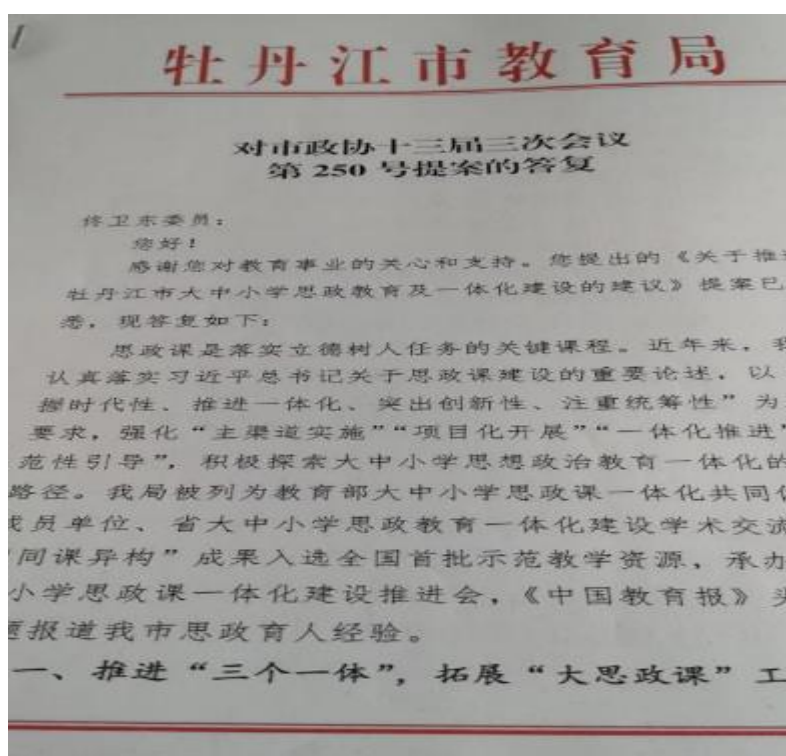 牡丹江市教育局
对市政协十三届三次会议
第 250 号提案的答复
佟卫东委员：
您好！
感谢您对教育事业的关心和支持。您提出的《关于推
牡丹江市大中小学思政教育及一体化建设的建议》提案已
悉，现答复如下：
思政课是落实立德树人任务的关键课程。近年来，我
认真落实习近平总书记关于思政课建设的重要论述，以
握时代性、推进一体化、突出创新性、注重统筹性”为
要求，强化“主渠道实施”“项目化开展”“一体化推进”
范性引导”，积极探索大中小学思想政治教育一体化的
路径。我局被列为教育部大中小学思政课一体化共同
成员单位、省大中小学思政教育一体化建设学术交流
同课异构”成果入选全国首批示范教学资源，承办
小学思政课一体化建设推进会，《中国教育报》头
题报道我市思政育人经验。
一、推进“三个一体”，拓展“大思政课”工